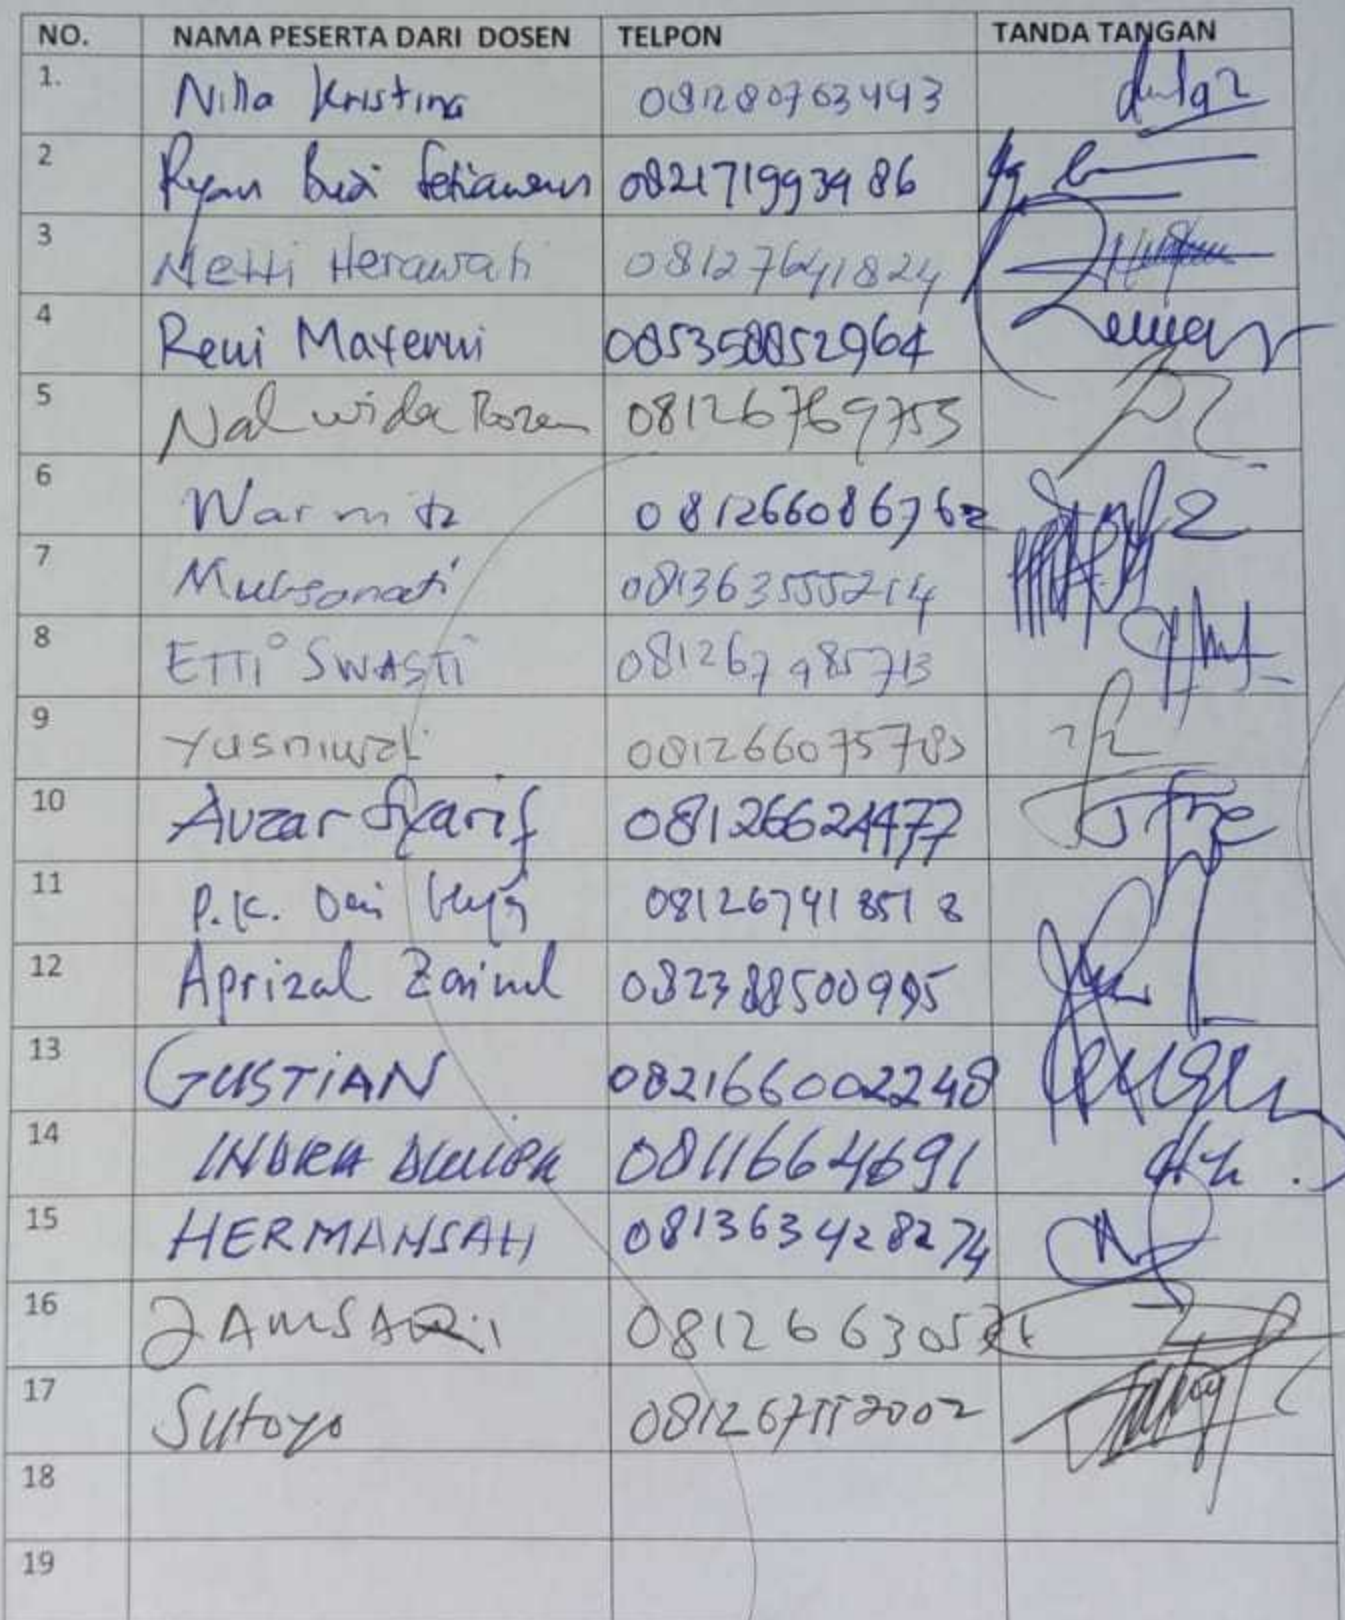 NO. NAMA PESERTA DARI DOSEN TELPON TANDA TANGAN
1. Nilla Kristina 081280763493
2 Ryan Budi Setiawan 082171993986
3 Netti Herawati 08127641824
4 Reni Mayerni 085358852964
5 Nalwida Rozen 08126769755
6 Warnita 081266086762
7 Muhsanati 081363555214
8 ETTI SWASTI 081267985713
9 Yusniwati
10 Auzar Syarif 08126624477
11 P.K. 081267418518
12 Aprizal Zainal 082388500995
13 GUSTIAN 082166002248
14 INDRA DWIPA 0811664691
15 HERMANSAH 081363428274
16 ZAMSARI
17 Sutoyo
18
19